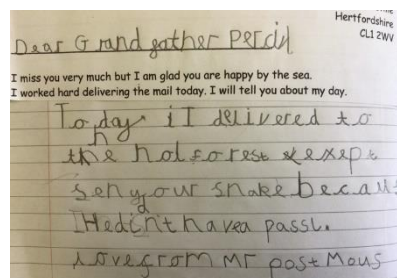 Hertfordshire
CL1 2WV
Dear Grandgather Percil
I miss you very much but I am glad you are happy by the sea.
I worked hard delivering the mail today. I will tell you about my day.
Today iI delivered to
the hol forest exept
senyour snake becaus
Hedidn't havea passl.
love from Mr post Mous